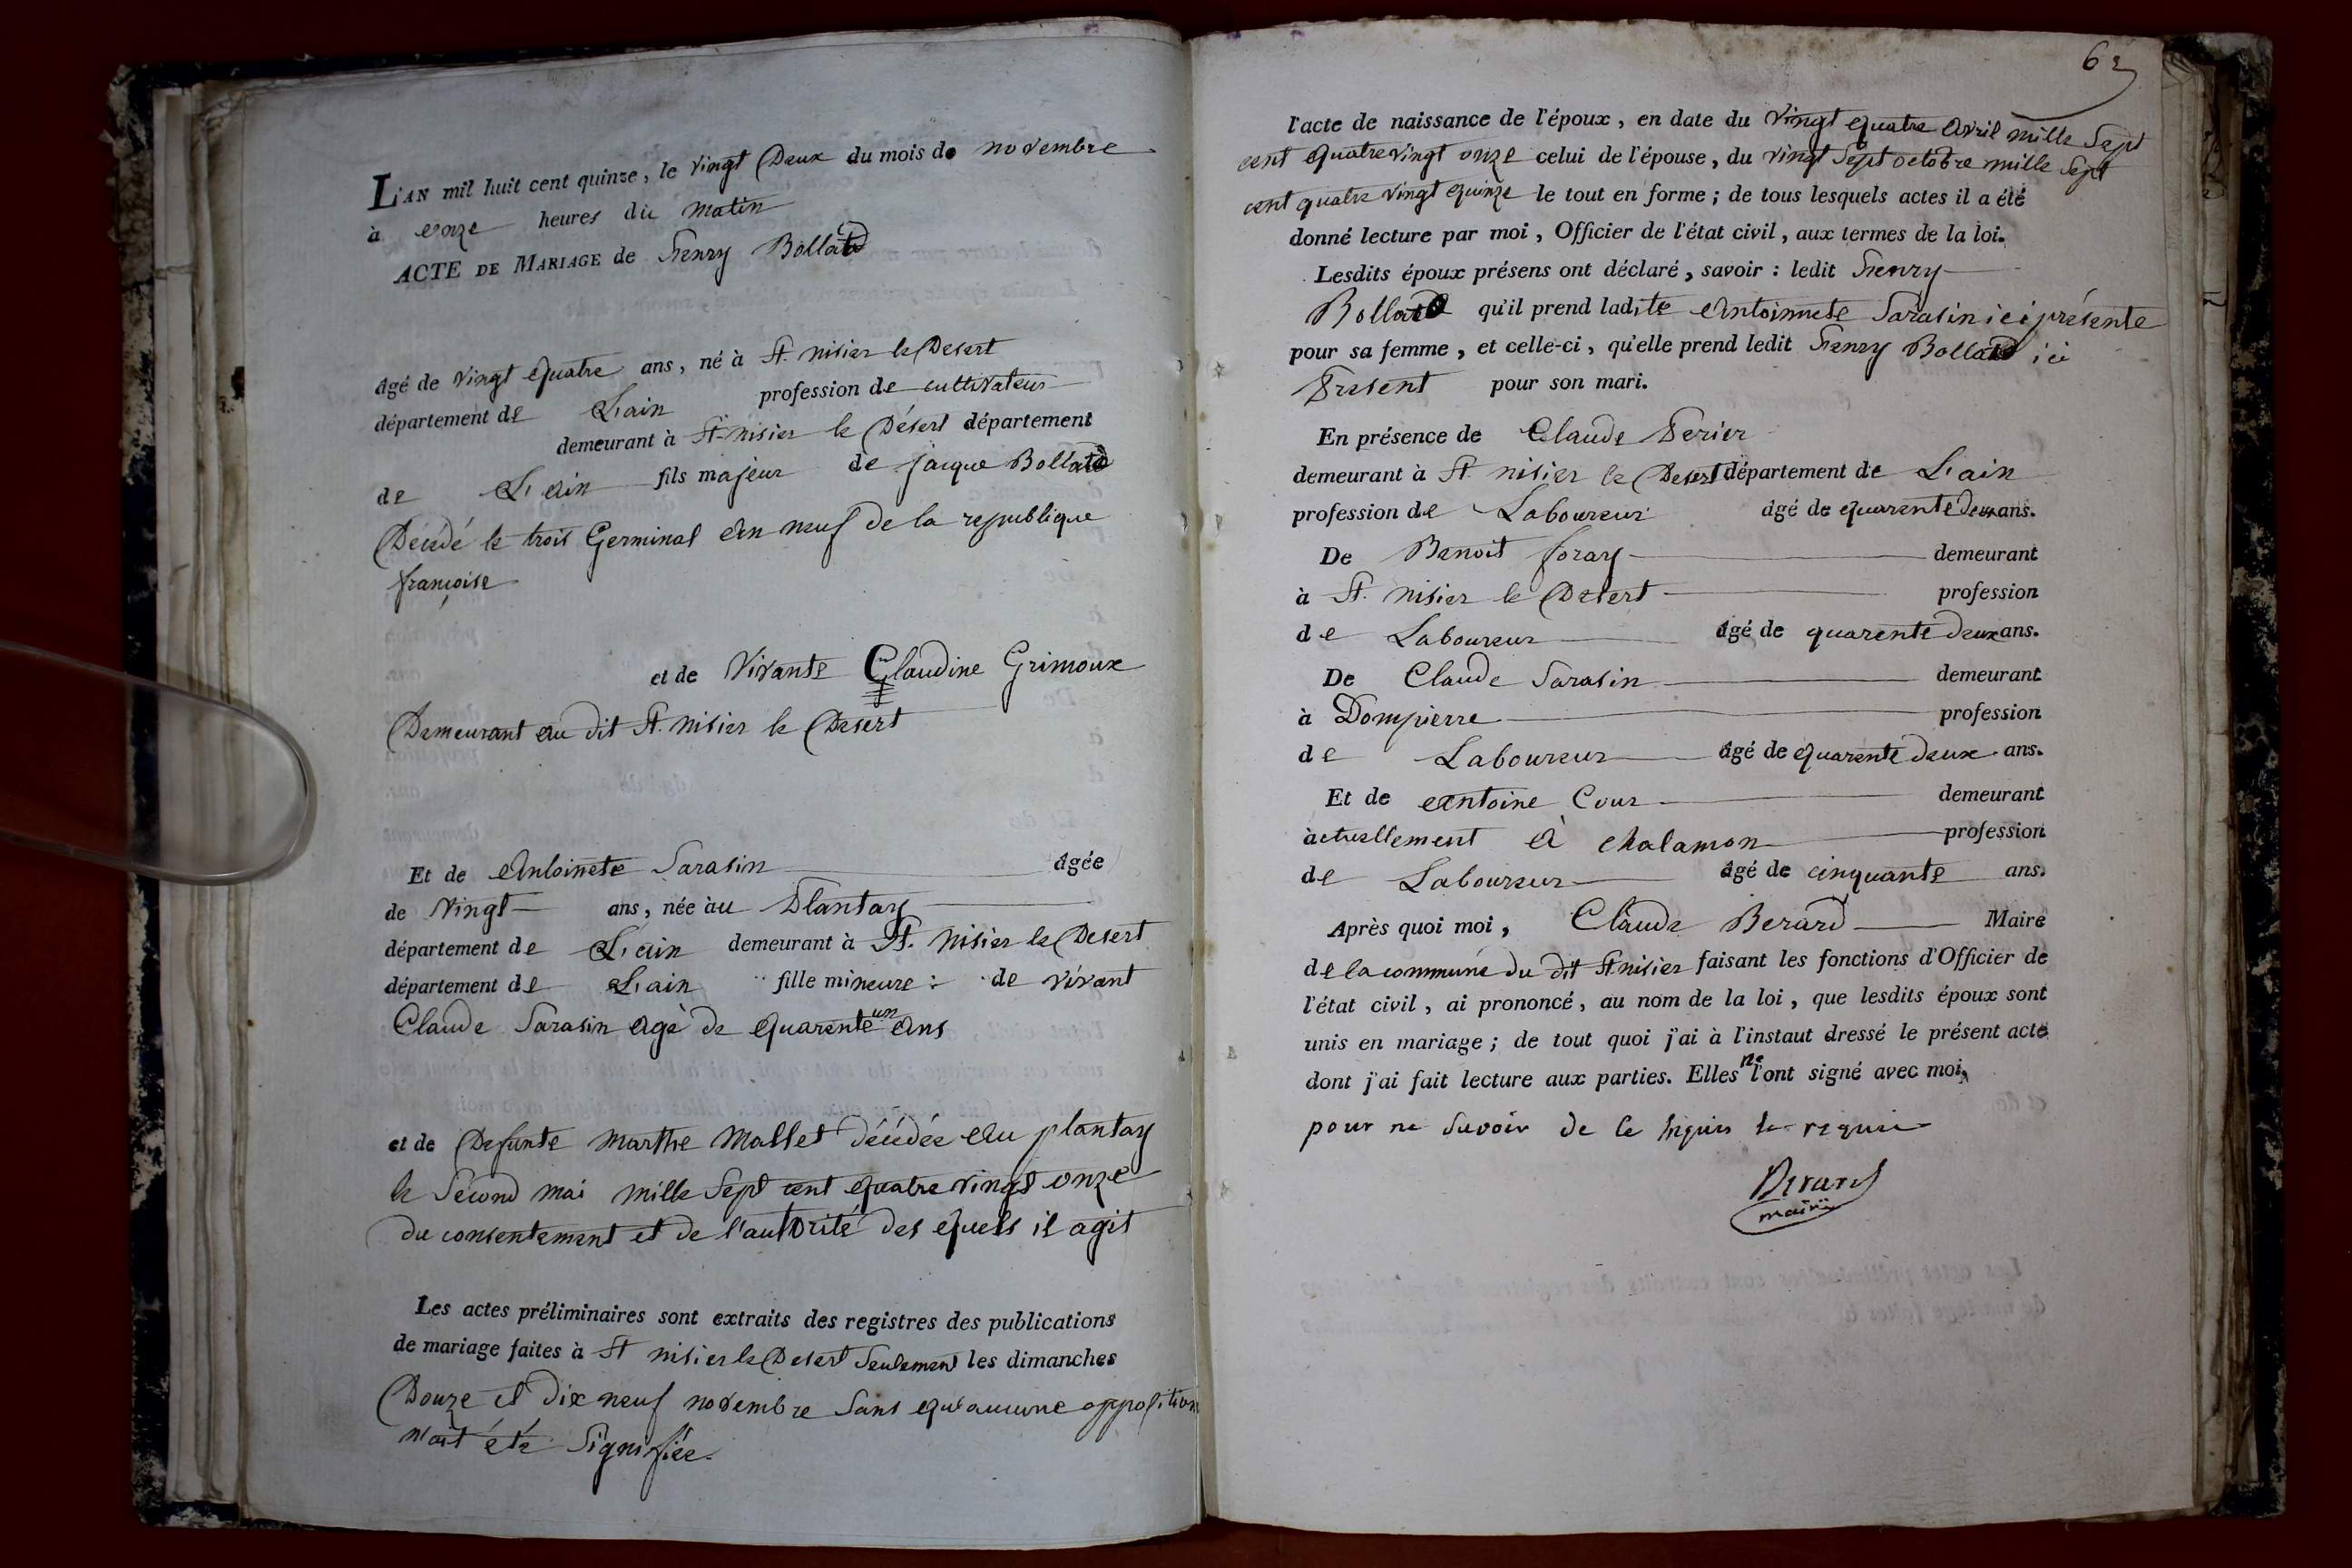 L'AN mil huit cent quinze, le vingt Deux du mois de novembre
à onze heures du matin
ACTE DE MARIAGE de henry Bollard
âgé de vingt quatre ans, né à St. nisier le Desert
département de L'ain profession de cultivateur
demeurant à St. nisier le Désert département
de L'ain fils majeur de jacque Bollard
Décédé le trois Germinal an neuf de la republique
françoise
et de vivante Claudine Grimoux
Demeurant au dit St. nisier le Desert
Et de Antoinete Sarasin âgée
de vingt ans, née au Plantay
département de L'ain demeurant à St. nisier le Desert
département de L'ain fille mineure de vivant
Claude Sarasin agé de quarente un ans
et de Defunte marthe mallet décédée au plantay
le Second mai mille Sept cent quatre vingt onze
du consentement et de l'autorité des quels il agit
Les actes préliminaires sont extraits des registres des publications
de mariage faites à St nisier le Desert Seulement les dimanches
Douze et dix neuf novembre Sans qu'aucune opposition
n'ait été Signifiée.
62
l'acte de naissance de l'époux, en date du vingt quatre avril mille Sept
cent quatre vingt onze celui de l'épouse, du vingt Sept octobre mille Sept
cent quatre vingt quinze le tout en forme ; de tous lesquels actes il a été
donné lecture par moi, Officier de l'état civil, aux termes de la loi.
Lesdits époux présens ont déclaré, savoir : ledit henry
Bollard qu'il prend ladite Antoinnete Sarasin ici présente
pour sa femme, et celle-ci, qu'elle prend ledit henry Bollard ici
Present pour son mari.
En présence de Claude Perier
demeurant à St nisier le Desert département de L'ain
profession de Laboureur âgé de quarente deux ans.
De Benoit foray demeurant
à St. nisier le Desert profession
de Laboureur âgé de quarente deux ans.
De Claude Sarasin demeurant
à Dompierre profession
de Laboureur âgé de quarente deux ans.
Et de antoine Cour demeurant
àctuellement à chalamon profession
de Laboureur âgé de cinquante ans.
Après quoi moi, Claude Berard Maire
de la commune du dit St nisier faisant les fonctions d'Officier de
l'état civil, ai prononcé, au nom de la loi, que lesdits époux sont
unis en mariage ; de tout quoi j'ai à l'instaut dressé le présent acte
dont j'ai fait lecture aux parties. Elles ne l'ont signé avec moi,
pour ne Savoir de ce requis
Berard
maire